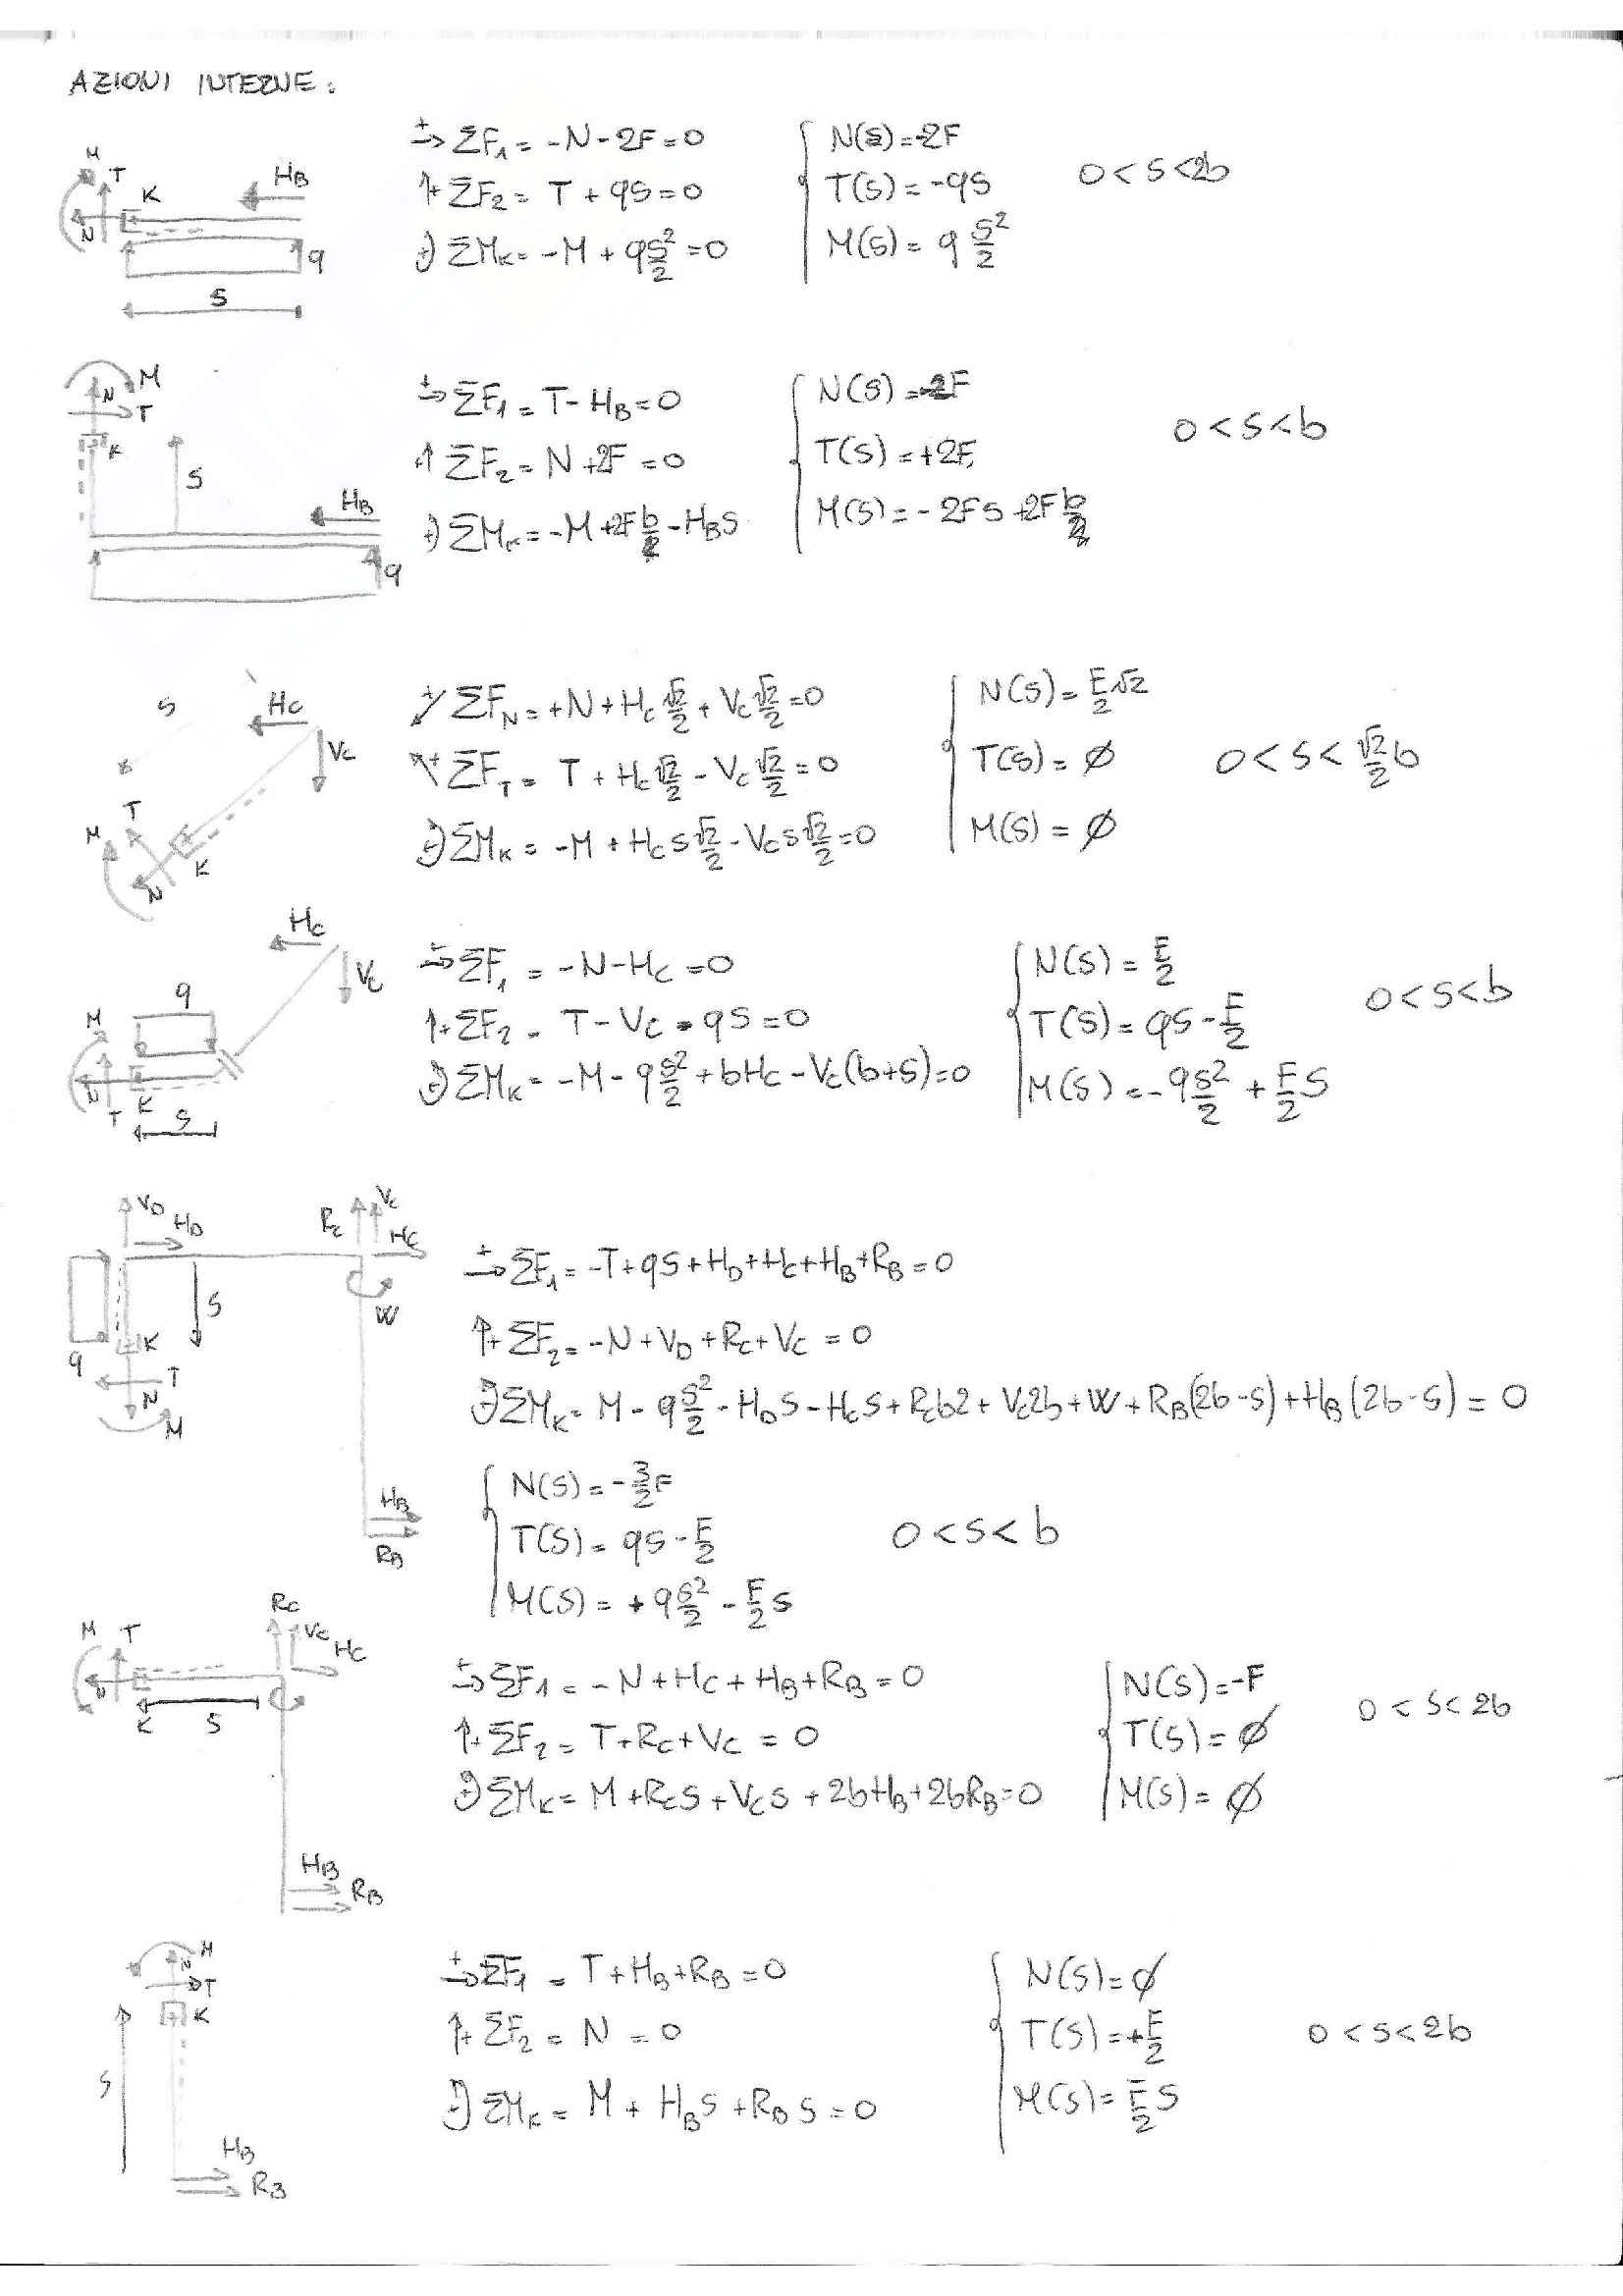 AZIONI INTERNE:
M T K HB N q S
→+ ΣF1 = -N - 2F = 0
↑+ ΣF2 = T + qS = 0
+) ΣMK = -M + qS²/2 = 0
N(S) = -2F
T(S) = -qS
M(S) = q S²/2
0 < S < 2b
M N T K S HB q
→+ ΣF1 = T - HB = 0
↑ ΣF2 = N + 2F = 0
+) ΣMK = -M + 2F b/2 - HB S
N(S) = -2F
T(S) = +2F
M(S) = -2FS + 2F b/2
0 < S < b
S HC VC T M N K
↙+ ΣFN = +N + HC √2/2 + VC √2/2 = 0
↖+ ΣFT = T + HC √2/2 - VC √2/2 = 0
+) ΣMK = -M + HC S √2/2 - VC S √2/2 = 0
N(S) = F/2 √2
T(S) = ∅
M(S) = ∅
0 < S < √2/2 b
HC VC q M N T K S
→+ ΣF1 = -N - HC = 0
↑+ ΣF2 = T - VC - qS = 0
+) ΣMK = -M - q S²/2 + bHC - VC(b+S) = 0
N(S) = F/2
T(S) = qS - F/2
M(S) = -q S²/2 + F/2 S
0 < S < b
VD HD RC VC HC W S q K T N M HB RB
→+ ΣF1 = -T + qS + HD + HC + HB + RB = 0
↑+ ΣF2 = -N + VD + RC + VC = 0
+) ΣMK = M - q S²/2 - HD S - HC S + RC b2 + VC 2b + W + RB(2b - S) + HB(2b - S) = 0
N(S) = -3/2 F
T(S) = qS - F/2
M(S) = + q S²/2 - F/2 S
0 < S < b
M T N K S RC VC HC HB RB
→+ ΣF1 = -N + HC + HB + RB = 0
↑+ ΣF2 = T + RC + VC = 0
+) ΣMK = M + RC S + VC S + 2bHB + 2bRB = 0
N(S) = -F
T(S) = ∅
M(S) = ∅
0 < S < 2b
M N T K S HB RB
→+ ΣF1 = T + HB + RB = 0
↑+ ΣF2 = N = 0
+) ΣMK = M + HB S + RB S = 0
N(S) = ∅
T(S) = +F/2
M(S) = F/2 S
0 < S < 2b